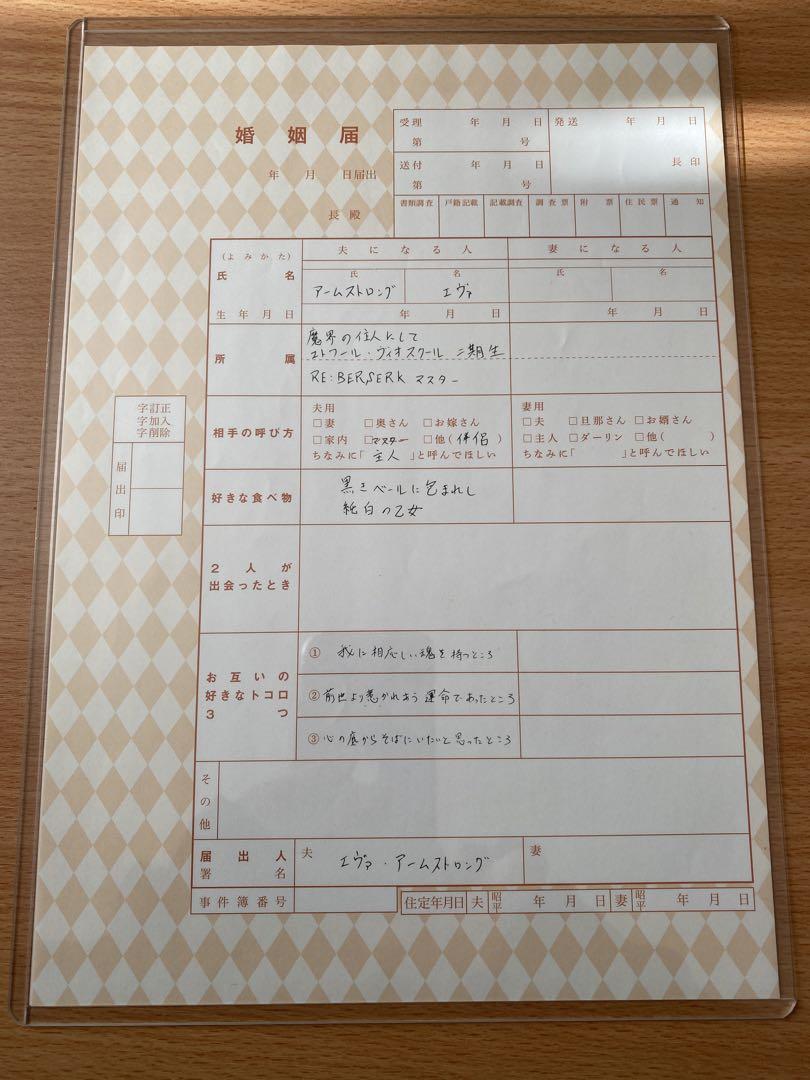 婚姻届
年 月 日届出
長殿
受理 年 月 日
第 号
送付 年 月 日
第 号
発送 年 月 日
長印
書類調査 戸籍記載 記載調査 調査票 附票 住民票 通知
字訂正
字加入
字削除
届出印
(よみかた)
氏名
夫になる人 妻になる人
氏 名 氏 名
アームストロング エヴァ
生年月日 年 月 日 年 月 日
所属
魔界の住人にして
エトワール・ヴィオスクール 二期生
RE:BERSERK マスター
相手の呼び方
夫用
□妻 □奥さん □お嫁さん
□家内 □マスター □他(伴侶)
ちなみに「主人」と呼んでほしい
妻用
□夫 □旦那さん □お婿さん
□主人 □ダーリン □他( )
ちなみに「 」と呼んでほしい
好きな食べ物
黒きベールに包まれし
純白の乙女
2人が
出会ったとき
お互いの
好きなトコロ
3つ
① 我に相応しい魂を持つところ
② 前世より惹かれあう運命であったところ
③ 心の底からそばにいたいと思ったところ
その他
届出人
署名
夫 エヴァ・アームストロング 妻
事件簿番号
住定年月日 夫 昭平 年 月 日 妻 昭平 年 月 日